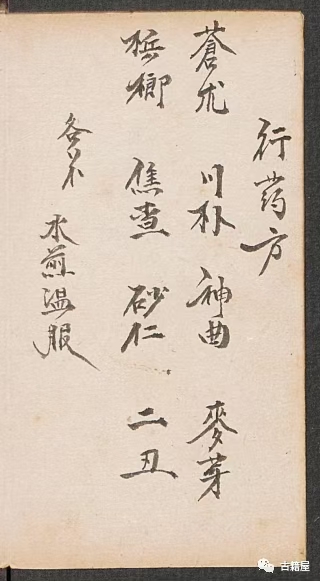 行药方
蒼朮 川朴 神曲 麥芽
梹榔 焦查 砂仁 二丑
各 水煎温服
古籍屋